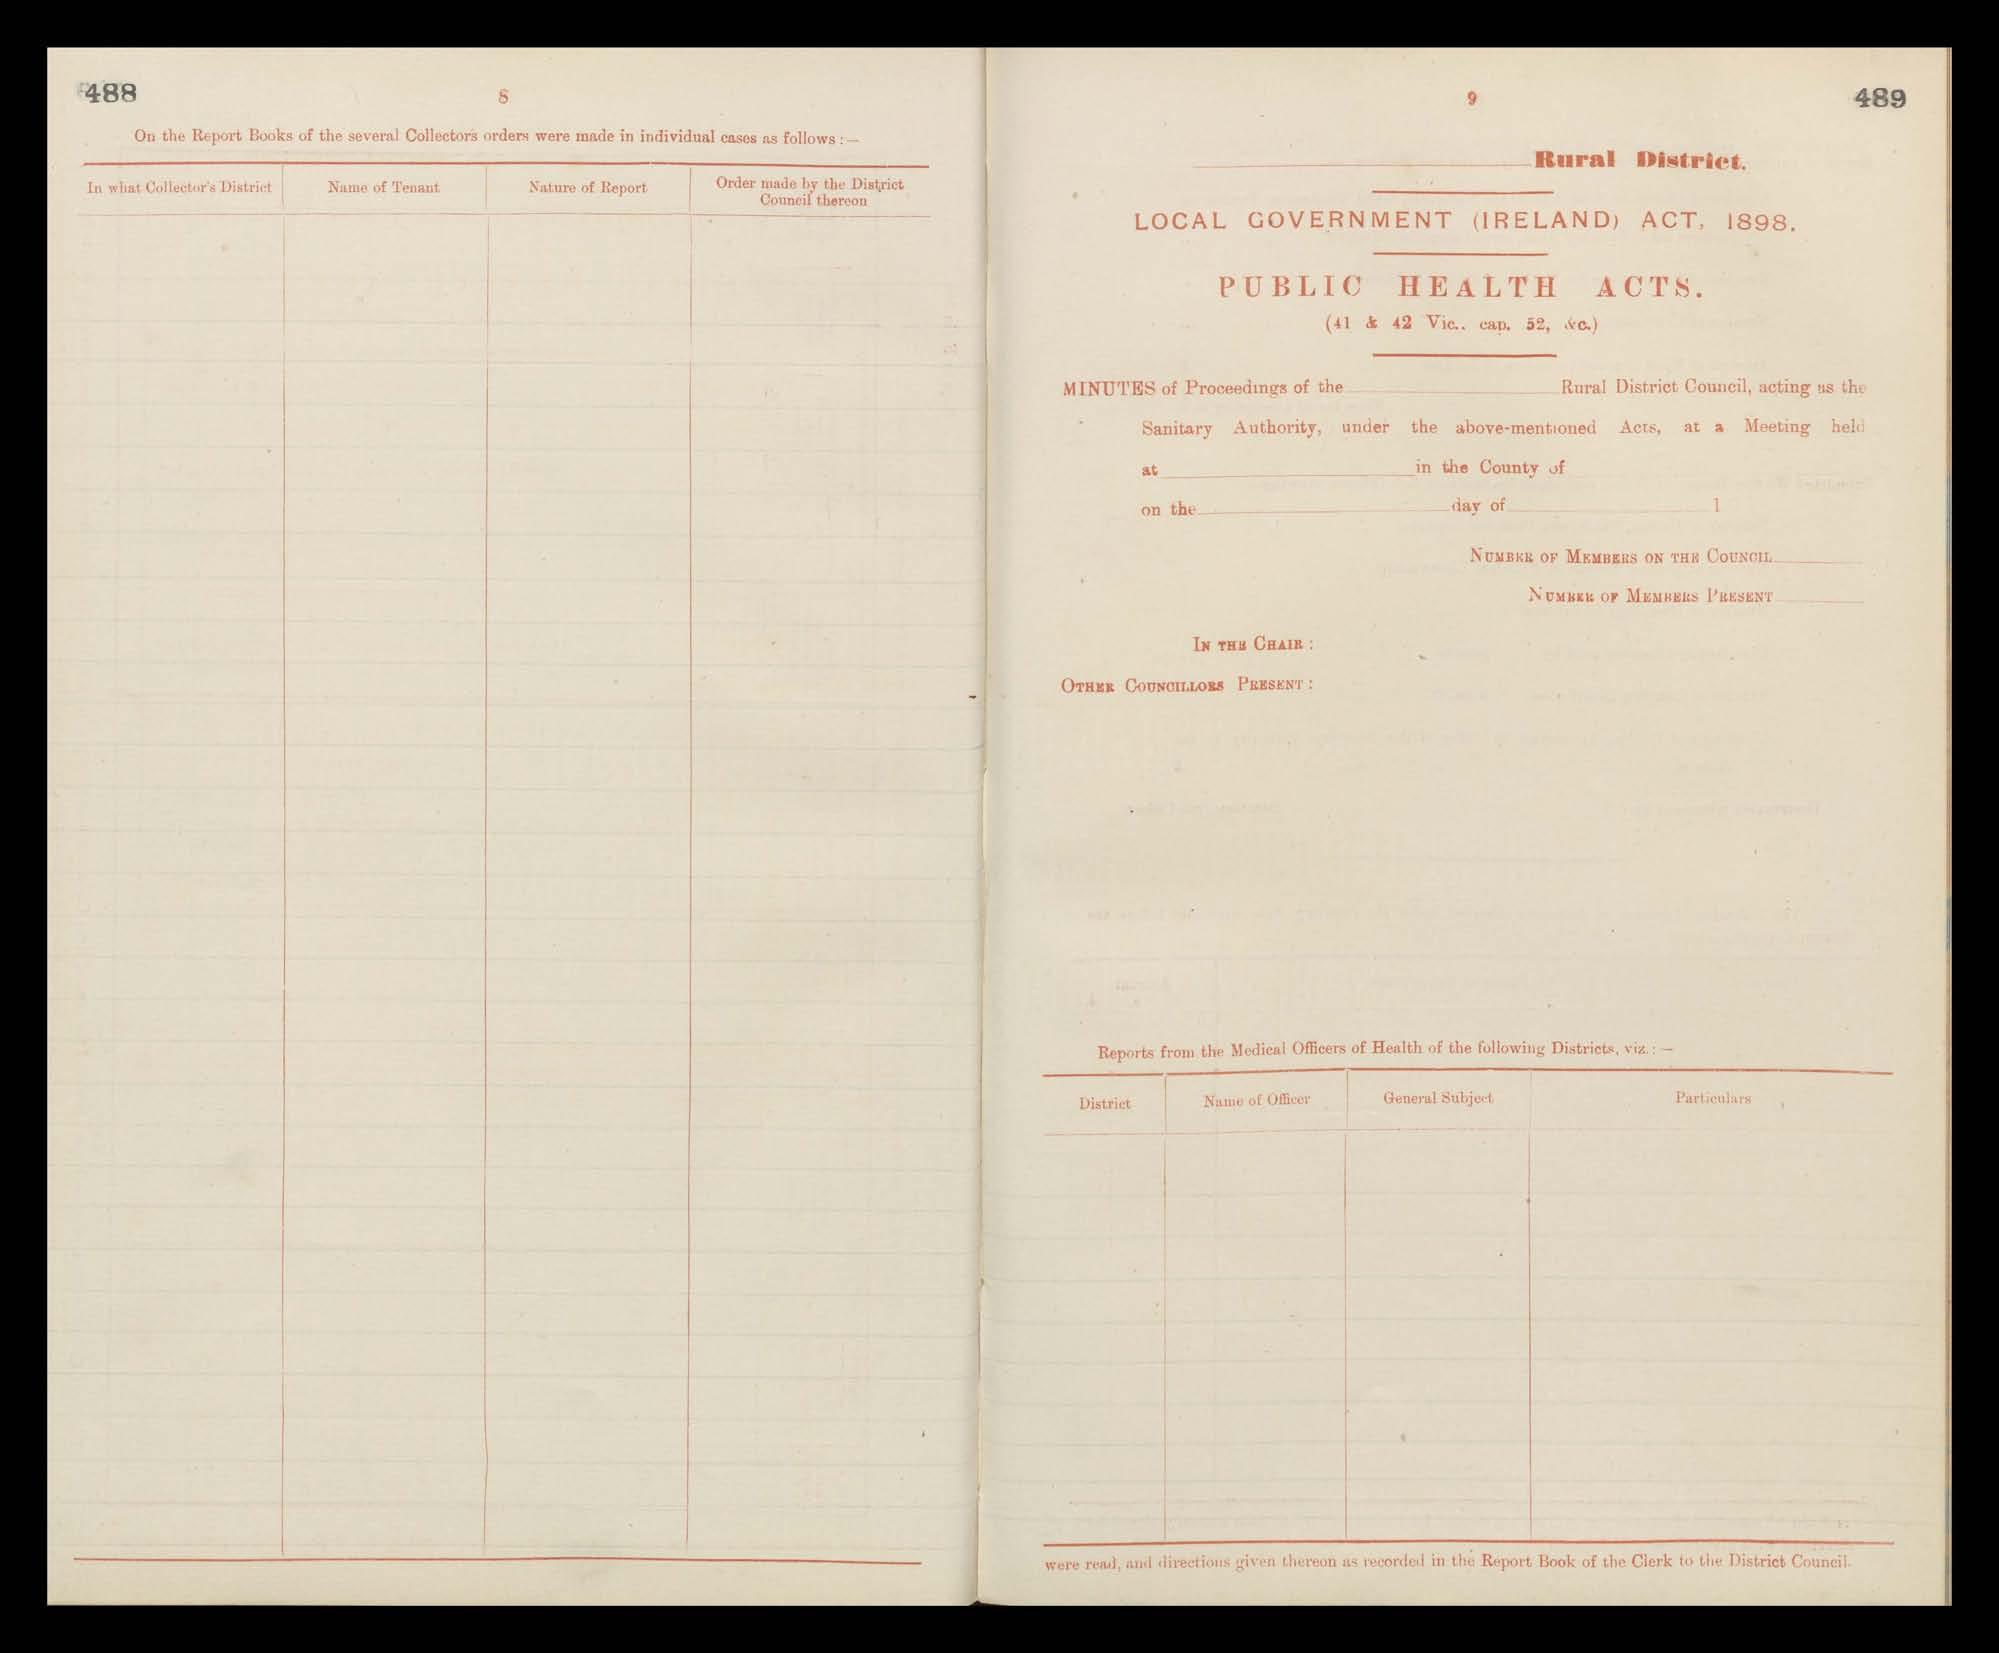 488
8
On the Report Books of the several Collectors orders were made in individual cases as follows :—
In what Collector's District
Name of Tenant
Nature of Report
Order made by the District
Council thereon
9
489
Rural District.
LOCAL GOVERNMENT (IRELAND) ACT, 1898.
PUBLIC HEALTH ACTS.
(41 & 42 Vic., cap. 52, &c.)
MINUTES of Proceedings of the Rural District Council, acting as the
Sanitary Authority, under the above-mentioned Acts, at a Meeting held
at in the County of
on the day of 1
NUMBER OF MEMBERS ON THE COUNCIL
NUMBER OF MEMBERS PRESENT
IN THE CHAIR :
OTHER COUNCILLORS PRESENT :
Reports from the Medical Officers of Health of the following Districts, viz. :—
District
Name of Officer
General Subject
Particulars
were read, and directions given thereon as recorded in the Report Book of the Clerk to the District Council.